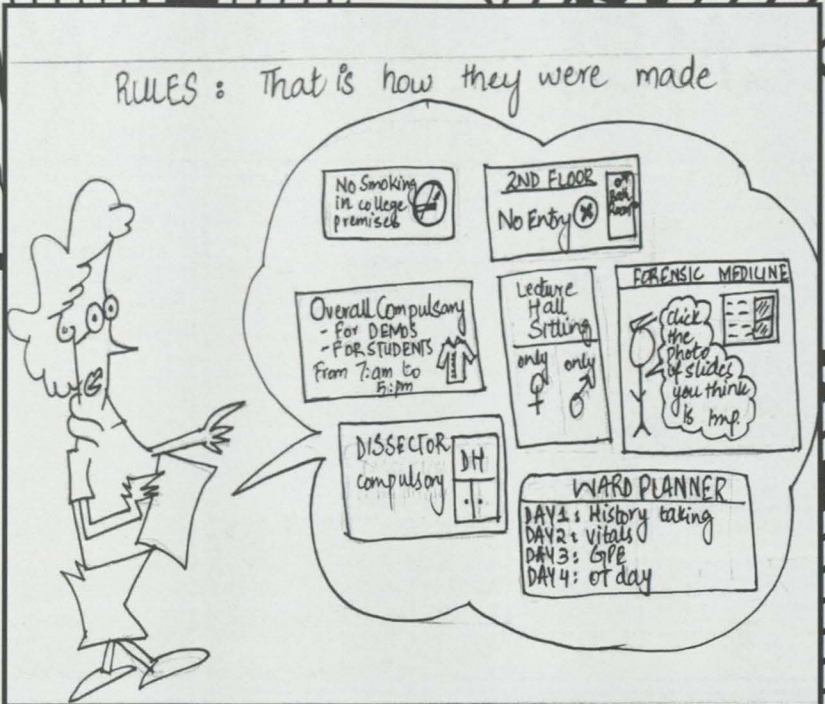 RULES : That is how they were made
No Smoking
in college
premises
2ND FLOOR
No Entry
Bath
Room
Overall Compulsory
- For DEMOS
- FOR STUDENTS
From 7:am to
5:pm
Lecture
Hall
Sitting
only
only
FORENSIC MEDICINE
Click
the
photo
of slides
you think
is Imp.
DISSECTOR
compulsory
DH
WARD PLANNER
DAY1: History taking
DAY2: vitals
DAY3: GPE
DAY4: OT day